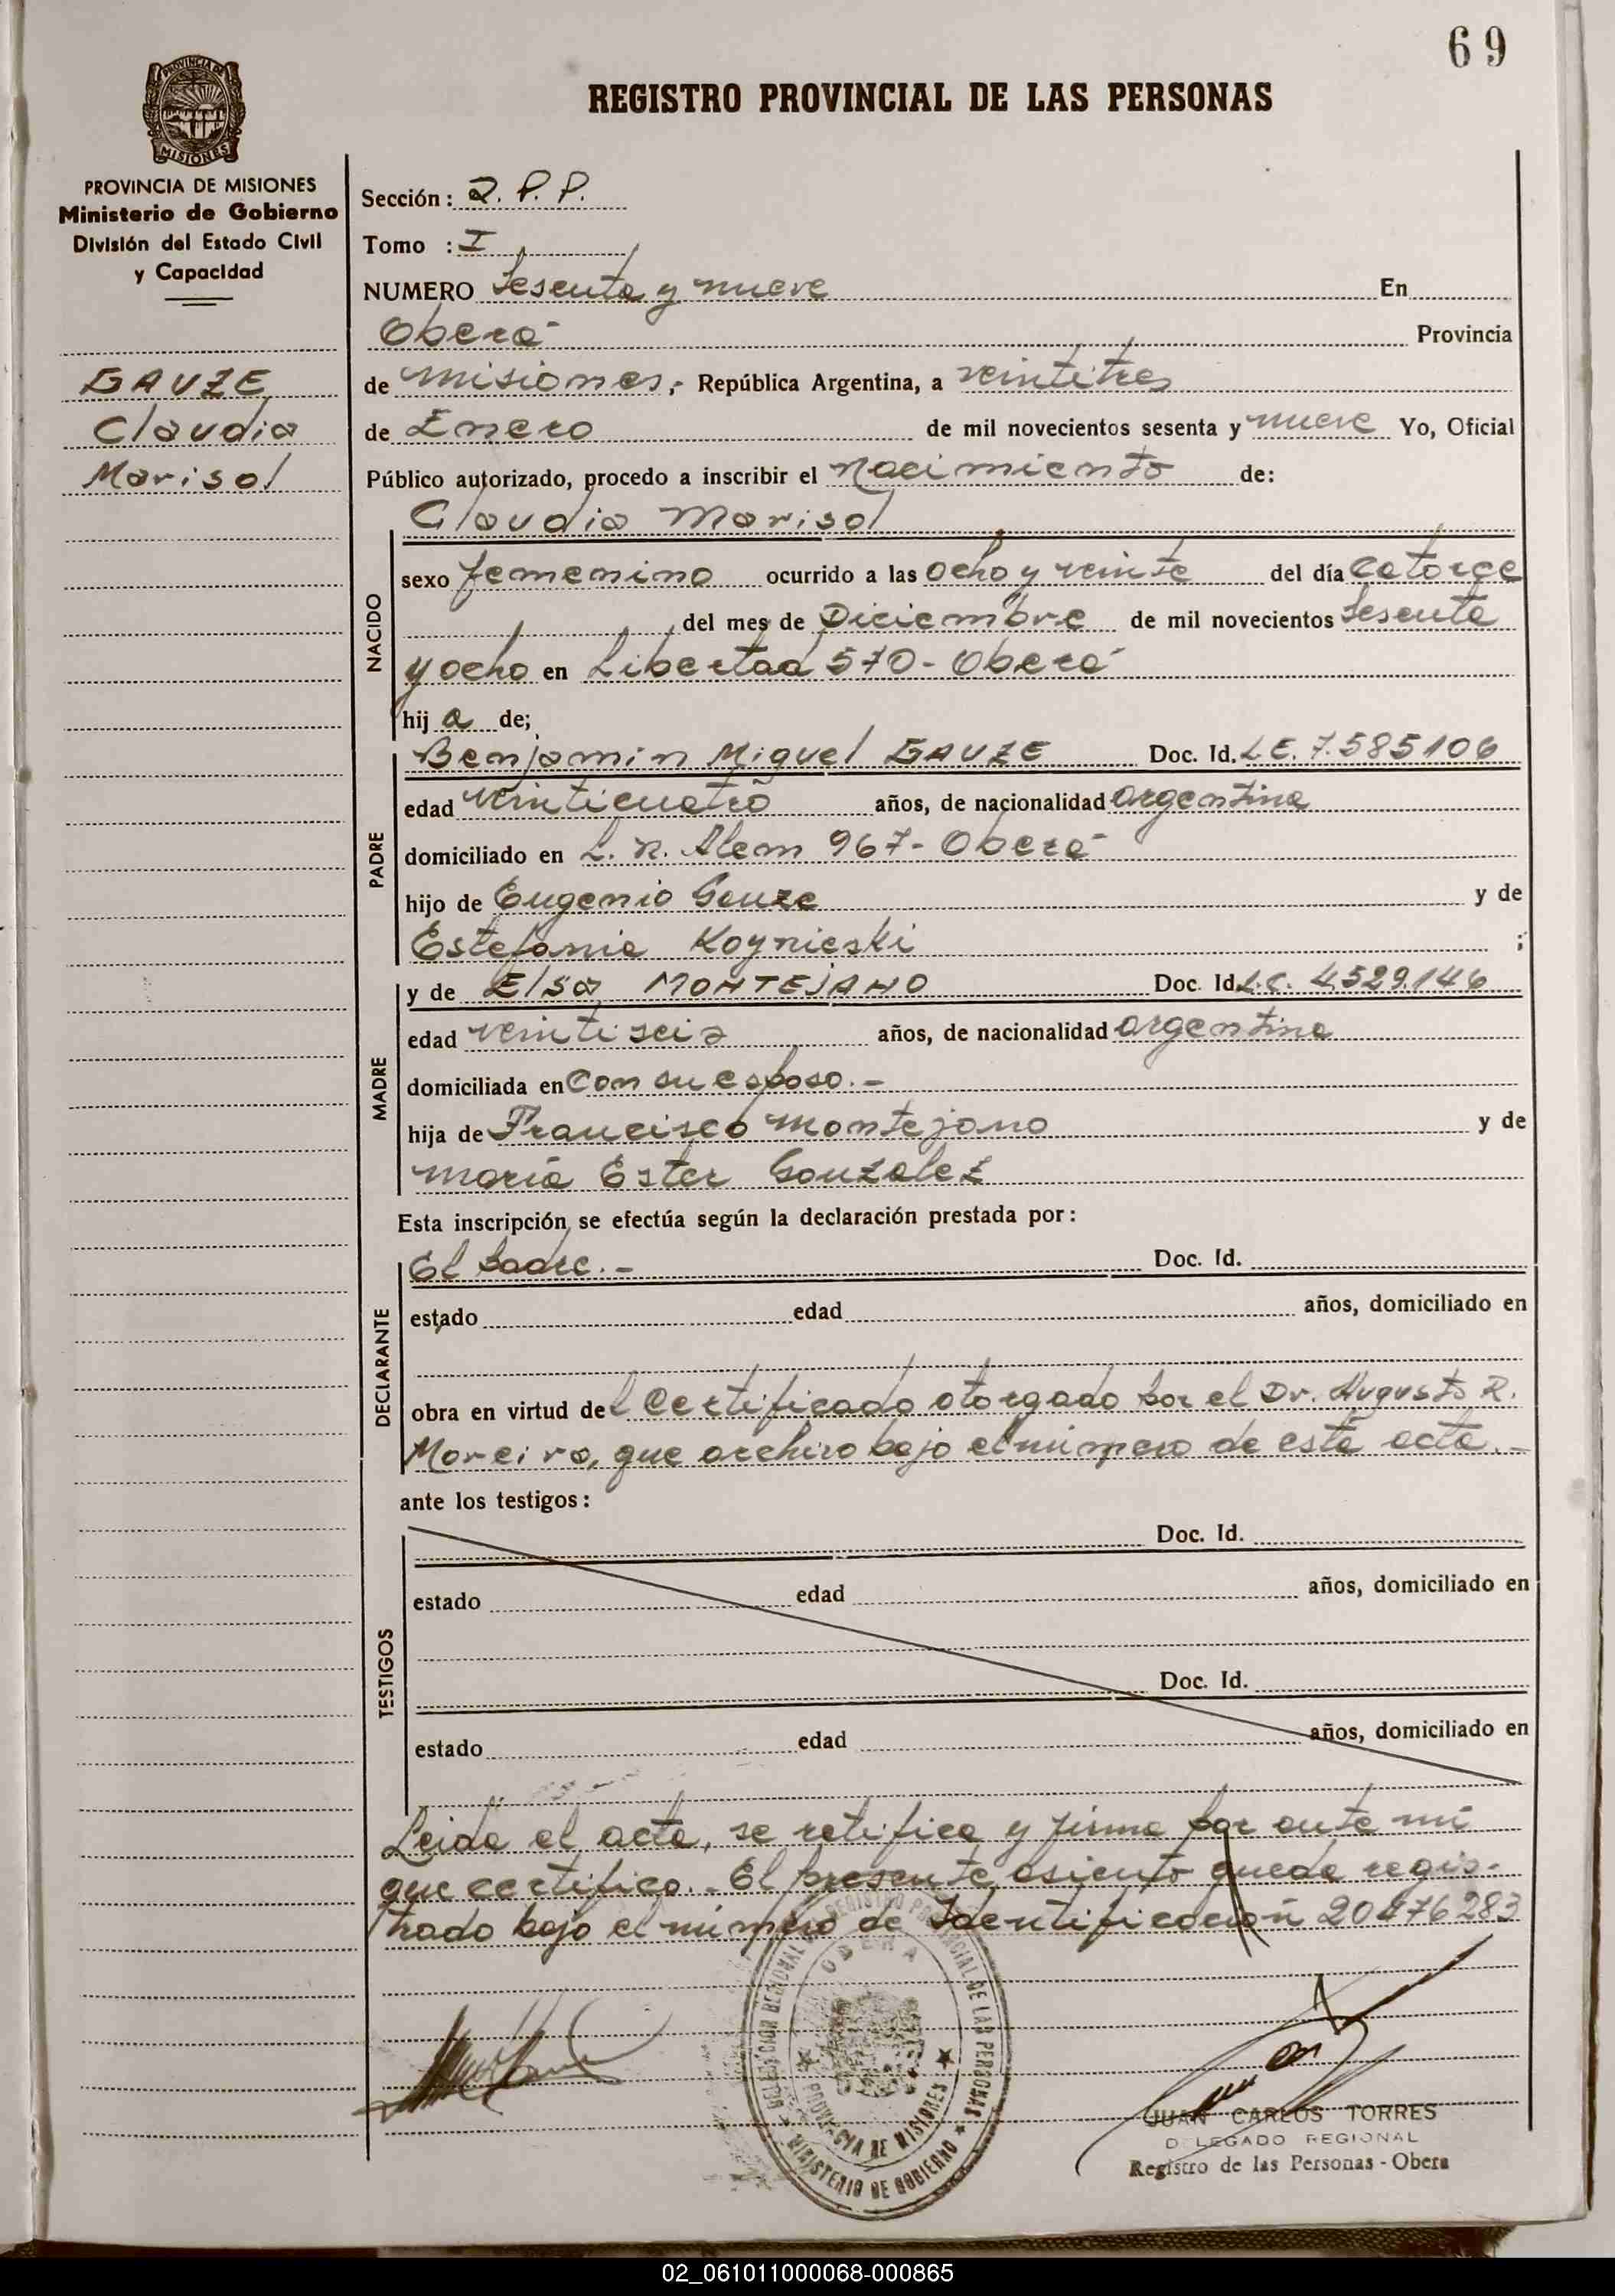 69
REGISTRO PROVINCIAL DE LAS PERSONAS
PROVINCIA DE MISIONES
MISIONES
PROVINCIA DE MISIONES
Ministerio de Gobierno
División del Estado Civil
y Capacidad
GAUZE
Claudia
Marisol
Sección: 2. P. P.
Tomo : I
NUMERO Sesenta y nueve En
Oberá Provincia
de Misiones,- República Argentina, a veintitres
de Enero de mil novecientos sesenta y nueve Yo, Oficial
Público autorizado, procedo a inscribir el Nacimiento de:
Claudia Marisol
NACIDO
sexo femenino ocurrido a las ocho y veinte del día catorce
del mes de Diciembre de mil novecientos sesenta
y ocho en Libertad 570- Oberá
hij a de;
PADRE
Benjamin Miguel GAUZE Doc. Id. L.E. 7.585106
edad veinticuatro años, de nacionalidad argentina
domiciliado en L. N. Alem 967- Oberá
hijo de Eugenio Gauze y de
Estefania ;
MADRE
y de Elsa MONTEJANO Doc. Id. L.C. 4.529.146
edad veintiseis años, de nacionalidad argentina
domiciliada en Con su esposo.-
hija de Francisco Montejano y de
María Ester Gonzalez
Esta inscripción, se efectúa según la declaración prestada por:
DECLARANTE
El padre.- Doc. Id.
estado edad años, domiciliado en
obra en virtud del Certificado otorgado por el Dr. Augusto R.
Moreira, que archivo bajo el número de esta acta.-
ante los testigos:
TESTIGOS
Doc. Id.
estado edad años, domiciliado en
Doc. Id.
estado edad años, domiciliado en
Leida el acta, se ratifica y firma por ante mi
que certifico.- El presente asiento queda regis-
trado bajo el número de Identificación 20476283
DELEGACION REGIONAL REGISTRO PROVINCIAL DE LAS PERSONAS
OBERA
PROVINCIA DE MISIONES
MINISTERIO DE GOBIERNO
JUAN CARLOS TORRES
DELEGADO REGIONAL
Registro de las Personas - Obera
02_061011000068-000865